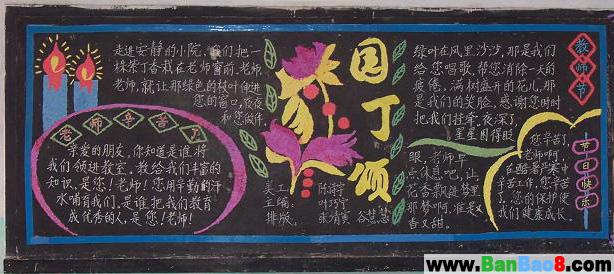 走进安静的小院,我们把一
株紫丁香栽在老师窗前.老师,
老师,就让那绿色的枝叶伸进
您的窗口,夜夜
和您做伴.
老师辛苦了
亲爱的朋友,你知道是谁将
我们领进教室,教给我们丰富的
知识,是您!老师!您用辛勤的汗
水哺育我们,是谁把我们教育
成优秀的人,是您!老师!
园丁颂
美工
主编
排版
谷慧慧
教师节
绿叶在风里沙沙,那是我们
给您唱歌,帮您消除一天的
疲倦.满树盛开的花儿,那
是我们的笑脸,感谢您时时
把我们挂牵.夜深了,
星星困得眨
眼,老师,早
点休息吧,让
花香飘进梦里
那梦啊,准是又
香又甜.
您辛苦了,
老师啊!
辛工作,您辛苦
了.您的保护使
我们健康成长.
节日快乐
www.BanBao8.com